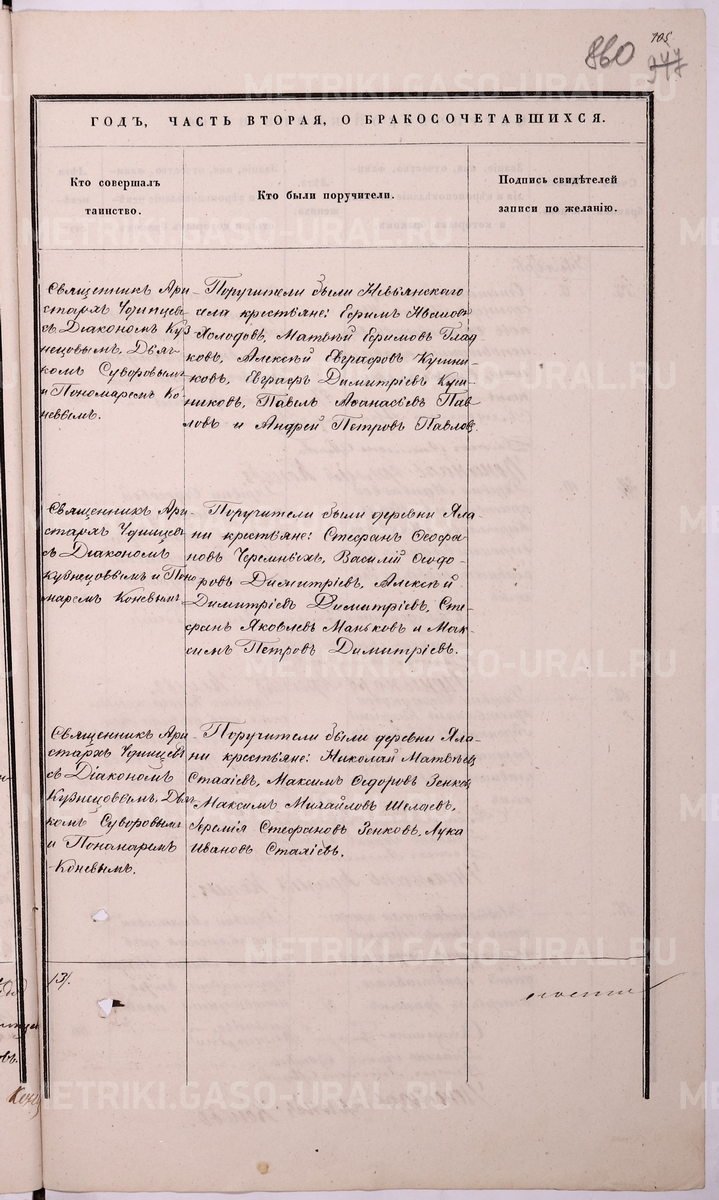 105
860
977
ГОДЪ, ЧАСТЬ ВТОРАЯ, О БРАКОСОЧЕТАВШИХСЯ.
Кто совершалъ
таинство.
Кто были поручители.
Подпись свидѣтелей
записи по желанію.
Священникъ Ари-
стархъ
съ Діакономъ Куз
нецовымъ, Дьяч
комъ Суворовымъ
и Пономаремъ Ко-
невымъ.
Поручители были Невьянскаго
села крестьяне: Ефимъ Ивановъ
Холодовъ, Матвѣй Ефимовъ Глад
ковъ, Алексѣй Евграфовъ
Евграфъ Димитріевъ
Павелъ Аѳанасьевъ Пав-
ловъ и Андрей Петровъ Павловъ.
Священникъ Ари-
стархъ
съ Діакономъ
Кузнецовымъ и Поно
маремъ Коневымъ.
Поручители были деревни Яла-
ни крестьяне: Стефанъ Ѳеофа-
новъ Черемныхъ, Василій Ѳеодо-
ровъ Димитріевъ, Алексѣй
Димитріевъ Димитріевъ, Сте-
фанъ Яковлевъ Маньковъ и Мак-
симъ Петровъ Димитріевъ.
Священникъ Ари-
стархъ
съ Діакономъ
Кузнецовымъ, Дьяч
комъ Суворовымъ
и Пономаремъ
Коневымъ.
Поручители были деревни Яла-
ни крестьяне: Николай Матвѣевъ
Стахіевъ, Максимъ Ѳедоровъ Зенков
Максимъ Михайловъ Шелаевъ,
Іеремія Стефановъ Зенковъ, Лука
Ивановъ Стахіевъ.
METRIKI.GASO-URAL.RU